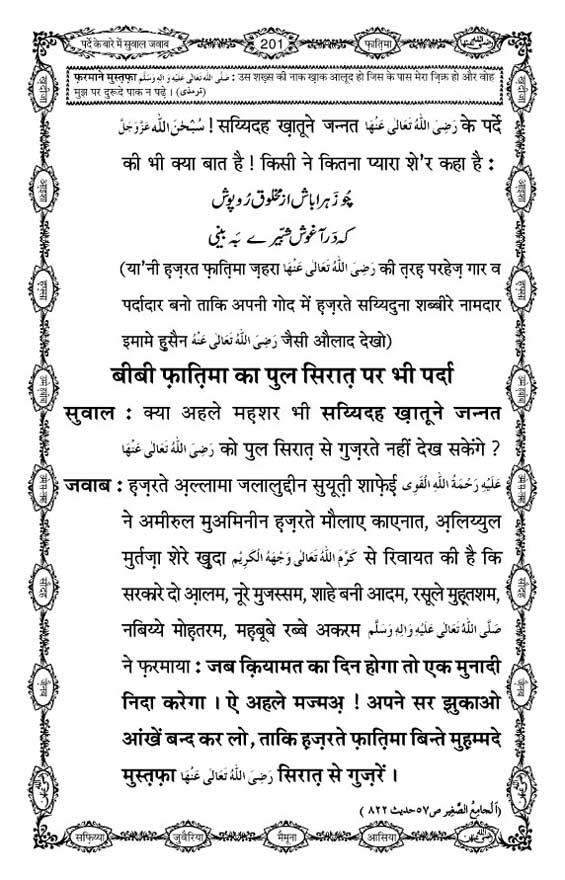 पर्दे के बारे में सुवाल जवाब 201 फ़ातिमा
फ़रमाने मुस्तफ़ा صَلَّى اللهُ تَعَالٰى عَلَيْهِ وَاٰلِهٖ وَسَلَّم : उस शख़्स की नाक ख़ाक आलूद हो जिस के पास मेरा ज़िक्र हो और वोह
मुझ पर दुरूदे पाक न पढ़े । (ترمذی)
سُبْحٰنَ اللّٰه عَزَّوَجَلَّ ! सय्यिदह ख़ातूने जन्नत رَضِىَ اللهُ تَعَالٰى عَنْهَا के पर्दे
की भी क्या बात है ! किसी ने कितना प्यारा शे'र कहा है :
چُو زَہرا باش از مخلوق رُوپوش
کہ دَر آغوش شبّیرے بَہ بینی
(या'नी ह़ज़रत फ़ाति़मा ज़हरा رَضِىَ اللهُ تَعَالٰى عَنْهَا की त़रह़ परहेज़ गार व
पर्दादार बनो ताकि अपनी गोद में ह़ज़रते सय्यिदुना शब्बीरे नामदार
इमामे हुसैन رَضِىَ اللهُ تَعَالٰى عَنْهُ जैसी औलाद देखो)
बीबी फ़ाति़मा का पुल सिरात़ पर भी पर्दा
सुवाल : क्या अहले मह़शर भी सय्यिदह ख़ातूने जन्नत
رَضِىَ اللهُ تَعَالٰى عَنْهَا को पुल सिरात़ से गुज़रते नहीं देख सकेंगे ?
जवाब : ह़ज़रते अ़ल्लामा जलालुद्दीन सुयूत़ी शाफ़ेई عَلَيْهِ رَحْمَةُ اللهِ الْقَوِى
ने अमीरुल मुअमिनीन ह़ज़रते मौलाए काएनात, अ़लिय्युल
मुर्तज़ा शेरे ख़ुदा كَرَّمَ اللهُ تَعَالٰى وَجْهَهُ الْكَرِيْم से रिवायत की है कि
सरकारे दो आ़लम, नूरे मुजस्सम, शाहे बनी आदम, रसूले मुह़्तशम,
नबिय्ये मोह़तरम, मह़बूबे रब्बे अकरम صَلَّى اللهُ تَعَالٰى عَلَيْهِ وَاٰلِهٖ وَسَلَّم
ने फ़रमाया : जब क़ियामत का दिन होगा तो एक मुनादी
निदा करेगा । ऐ अहले मज्मअ़ ! अपने सर झुकाओ
आंखें बन्द कर लो, ताकि ह़ज़रते फ़ाति़मा बिन्ते मुह़म्मदे
मुस्त़फ़ा رَضِىَ اللهُ تَعَالٰى عَنْهَا सिरात़ से गुज़रें ।
(اَلْجامِعُ الصَّغِير ص٥٧ حديث ٨٢٢)
सफ़िय्या जुवैरिया मैमूना आसिया